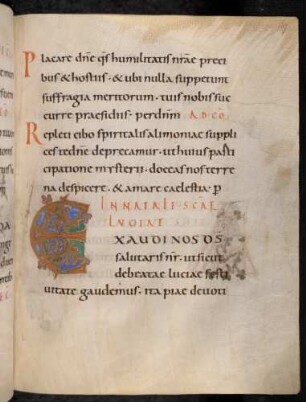 Placare dne qs humilitatis nrae preci
bus & hostiis · & ubi nulla suppetunt
suffragia meritorum · tuis nobis suc
curre praesidiis · per dnm AD CO
Repleti cibo spiritalis alimoniae suppli
ces te dne deprecamur · ut huius parti
cipatione mysterii · doceas nos terre
na despicere · & amare caelestia · p
IN NATALE SCAE
LUCIAE
EXAUDI NOS DS
salutaris nr · ut sicut
de beatae luciae festi
vitate gaudemus · ita piae devoti